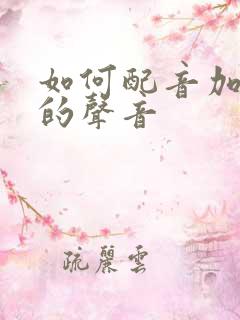 如何配音加
的聲音
疏麗雲